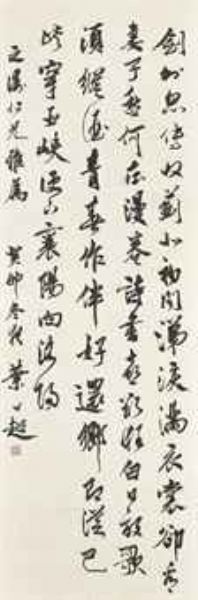 劍外忽傳收薊北初聞涕淚滿衣裳卻看
妻子愁何在漫卷詩書喜欲狂白日放歌
須縱酒青春作伴好還鄉即從巴
峽穿巫峽便下襄陽向洛陽
之瀚仁兄雅屬 癸卯冬夜 葉公超